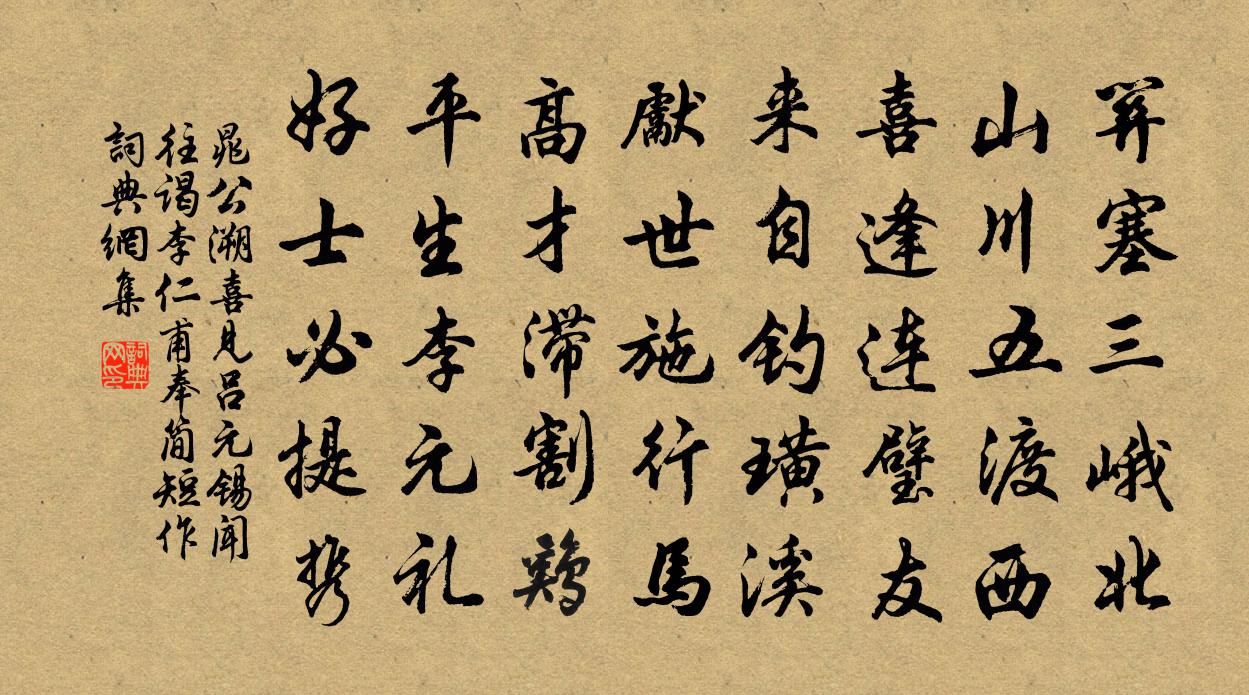 關塞三峨北
山川五渡西
喜逢连璧友
来自钓璜溪
獻世施行馬
高才滞割鶏
平生李元礼
好士必提携
晁公溯喜見吕元锡闻
往谒李仁甫奉简短作
詞典網集
詞典网印